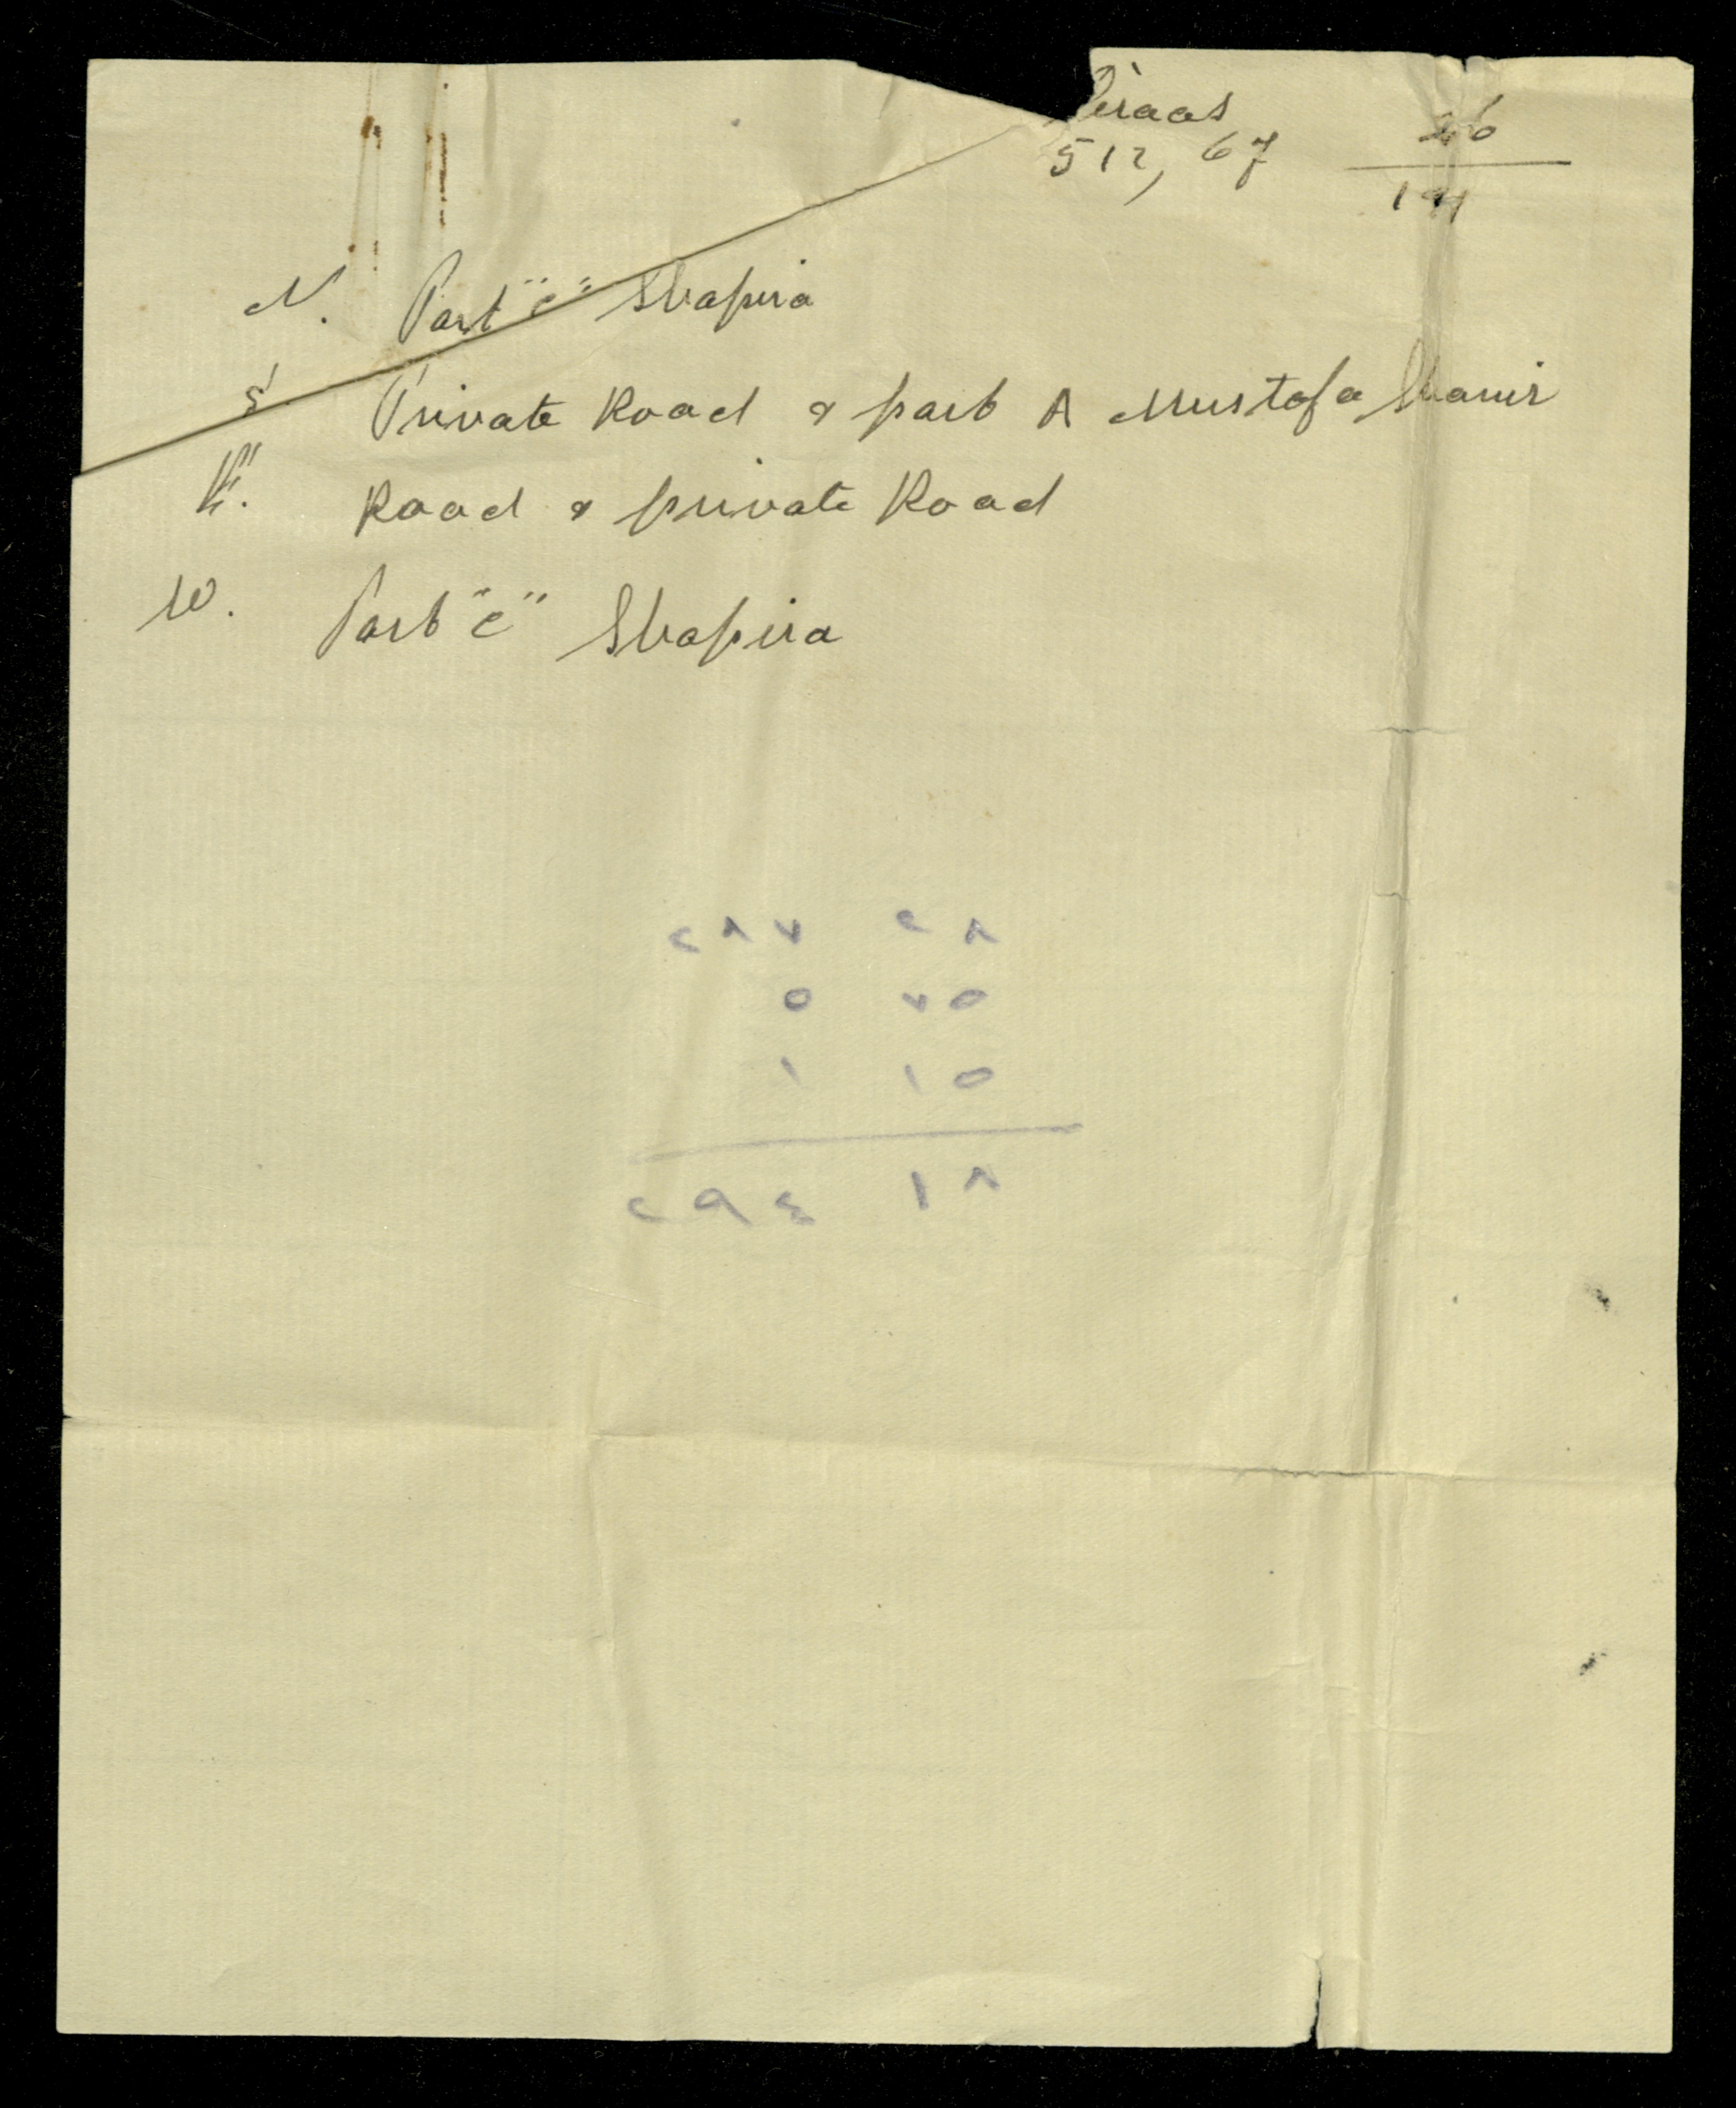 Diraas
512, 67
N. Part "C" Shapira
S. Private Road & part A Mustafa
E. Road & private Road
W. Part "C" Shapira
٢٨٧ ٢٨
٥ ٧٥
١ ١٥
٢٩٤ ١٨